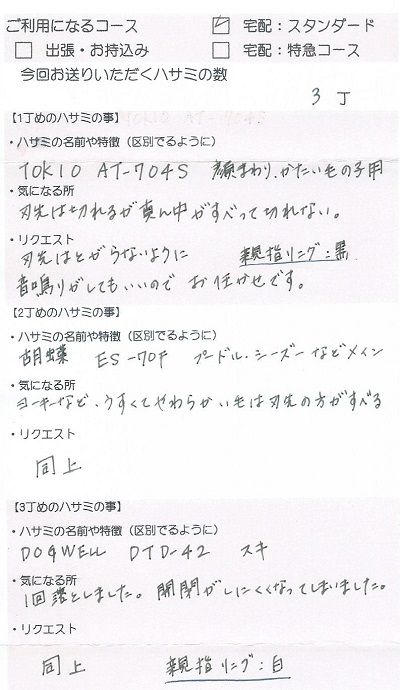 ご利用になるコース
☑ 宅配：スタンダード
□ 出張・お持込み
□ 宅配：特急コース
今回お送りいただくハサミの数
3 丁
【1丁めのハサミの事】
・ハサミの名前や特徴（区別でるように）
TOKIO AT-704S 顔まわり、かたい毛の子用
・気になる所
刃先は切れるが真ん中がすべって切れない。
・リクエスト
刃先はとがらないように 親指リング：黒
音鳴りがしてもいいので お任せです。
【2丁めのハサミの事】
・ハサミの名前や特徴（区別でるように）
胡蝶 ES-70F プードル・シーズーなどメイン
・気になる所
ヨーキーなど、うすくてやわらかい毛は刃先の方がすべる
・リクエスト
同上
【3丁めのハサミの事】
・ハサミの名前や特徴（区別でるように）
DOGWELL DTD-42 スキ
・気になる所
1回落としました。開閉がしにくくなってしまいました。
・リクエスト
同上 親指リング：白